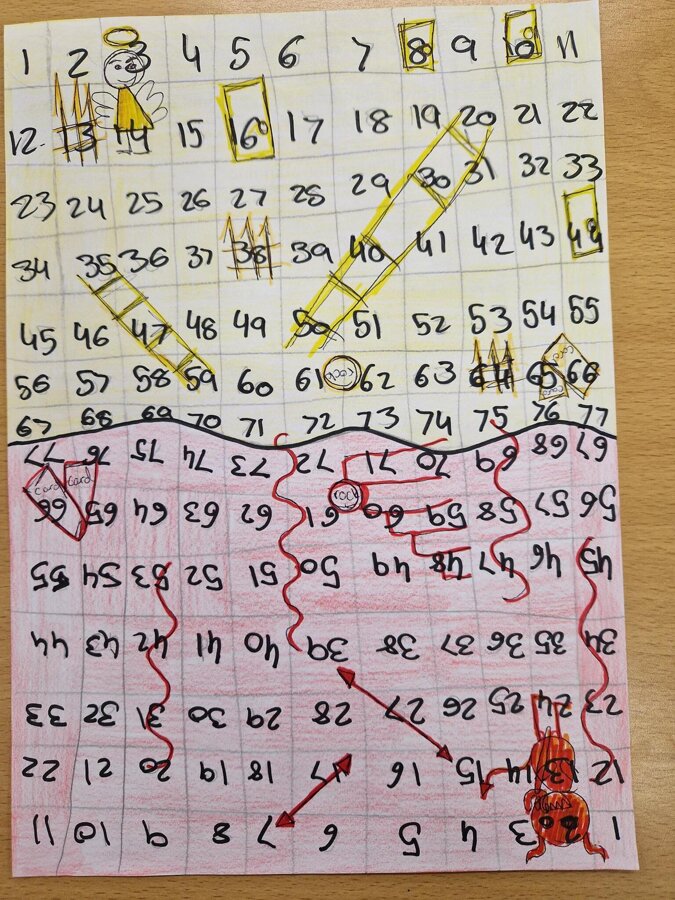 1 2 3 4 5 6 7 8 9 10 11
12 13 14 15 16 17 18 19 20 21 22
23 24 25 26 27 28 29 30 31 32 33
34 35 36 37 38 39 40 41 42 43 44
45 46 47 48 49 50 51 52 53 54 55
56 57 58 59 60 61 rock 62 63 64 65 card card 66
67 68 69 70 71 72 73 74 75 76 77
77 76 75 74 73 72 71 70 69 68 67
card card rock
66 65 64 63 62 61 60 59 58 57 56
55 54 53 52 51 50 49 48 47 46 45
44 43 42 41 40 39 38 37 36 35 34
33 32 31 30 29 28 27 26 25 24 23
22 21 20 19 18 17 16 15 14 13 12
11 10 9 8 7 6 5 4 3 2 1